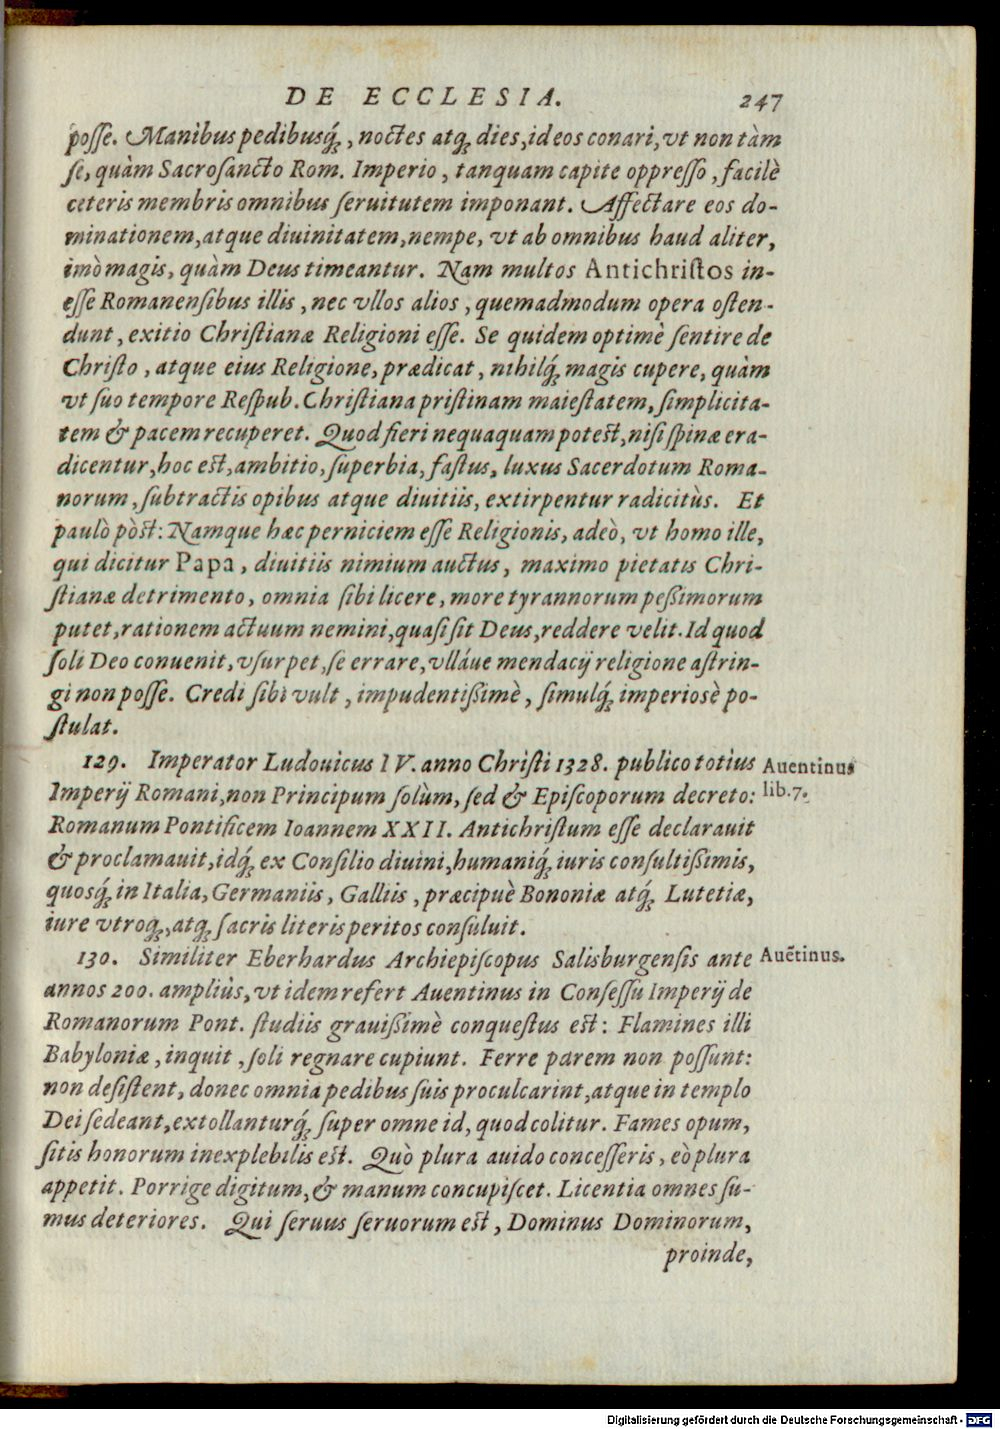 DE ECCLESIA. 247
posse. Manibus pedibusq́, noctes atq́ dies, id eos conari, vt non tàm
se, quàm Sacrosancto Rom. Imperio, tanquam capite oppresso, facilè
ceteris membris omnibus seruitutem imponant. Affectare eos do-
minationem, atque diuinitatem, nempe, vt ab omnibus haud aliter,
imò magis, quàm Deus timeantur. Nam multos Antichristos in-
esse Romanensibus illis, nec vllos alios, quemadmodum opera osten-
dunt, exitio Christianæ Religioni esse. Se quidem optimè sentire de
Christo, atque eius Religione, prædicat, nihilq́ magis cupere, quàm
vt suo tempore Respub. Christiana pristinam maiestatem, simplicita-
tem & pacem recuperet. Quod fieri nequaquam potest, nisi spinæ era-
dicentur, hoc est, ambitio, superbia, fastus, luxus Sacerdotum Roma-
norum, subtractis opibus atque diuitiis, extirpentur radicitùs. Et
paulò pòst: Namque hæc perniciem esse Religionis, adeò, vt homo ille,
qui dicitur Papa, diuitiis nimium auctus, maximo pietatis Chri-
stianæ detrimento, omnia sibi licere, more tyrannorum peßimorum
putet, rationem actuum nemini, quasi sit Deus, reddere velit. Id quod
soli Deo conuenit, vsurpet, se errare, vlláue mendacij religione astrin-
gi non posse. Credi sibi vult, impudentißimè, simulq́ imperiosè po-
stulat.
129. Imperator Ludouicus IV. anno Christi 1328. publico totius
Auentinus
Imperij Romani, non Principum solùm, sed & Episcoporum decreto:
lib.7.
Romanum Pontificem Ioannem XXII. Antichristum esse declarauit
& proclamauit, idq́ ex Consilio diuini, humaniq́ iuris consultißimis,
quosq́ in Italia, Germaniis, Galliis, præcipuè Bononiæ atq́ Lutetiæ,
iure vtroq́, atq́ sacris literis peritos consuluit.
130. Similiter Eberhardus Archiepiscopus Salisburgensis ante
Auẽtinus.
annos 200. ampliùs, vt idem refert Auentinus in Consessu Imperij de
Romanorum Pont. studiis grauißimè conquestus est: Flamines illi
Babyloniæ, inquit, soli regnare cupiunt. Ferre parem non possunt:
non desistent, donec omnia pedibus suis proculcarint, atque in templo
Dei sedeant, extollanturq́ super omne id, quod colitur. Fames opum,
sitis honorum inexplebilis est. Quò plura auido concesseris, eò plura
appetit. Porrige digitum, & manum concupiscet. Licentia omnes su-
mus deteriores. Qui seruus seruorum est, Dominus Dominorum,
proinde,
Digitalisierung gefördert durch die Deutsche Forschungsgemeinschaft - DFG